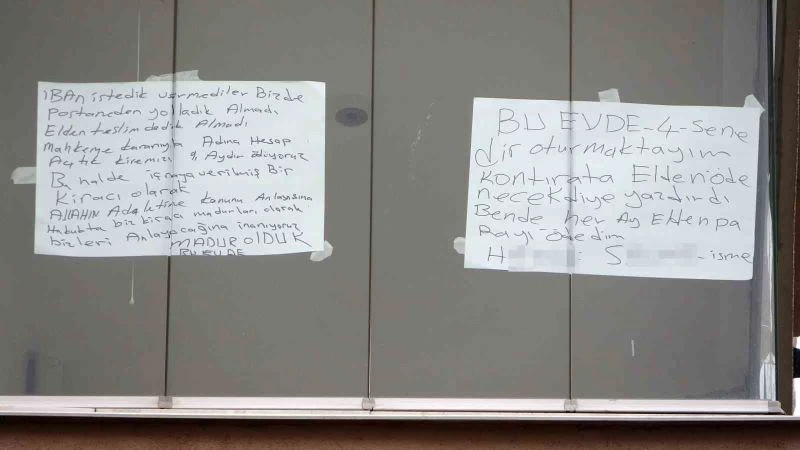 İBAn istedik vermediler Bizde
Postaneden yolladık Almadı
Elden teslim dedik Almadı
Mahkeme kararıyla Adına Hesap
Açtık kiremizi 9 Aydır ödüyoruz
Bu halde içraya verilmiş Bir
Kiracı olarak
AllAHIN Adaletine konunu Anlayışına
Hukukta biz kiracı madurları olarak
bizleri Anlayacağına inanıyoruz
MADUR OLDUK
BU EVDE
BU EVDE-4-Sene
dir oturmaktayım
kontırata Elden öde
necek diye yazdırdı
Bende her Ay Elden pa
Rayı ödedim
H S -isme